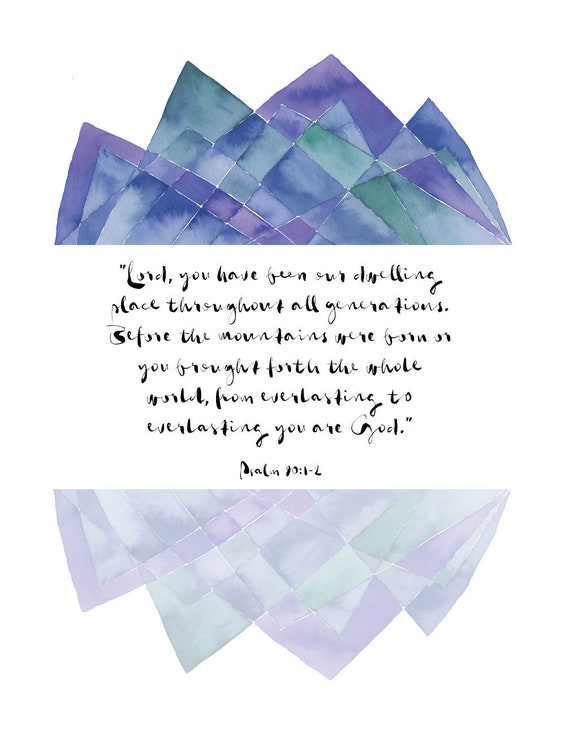 "Lord, you have been our dwelling
place throughout all generations.
Before the mountains were born or
you brought forth the whole
world, from everlasting to
everlasting you are God."
Psalm 90:1-2